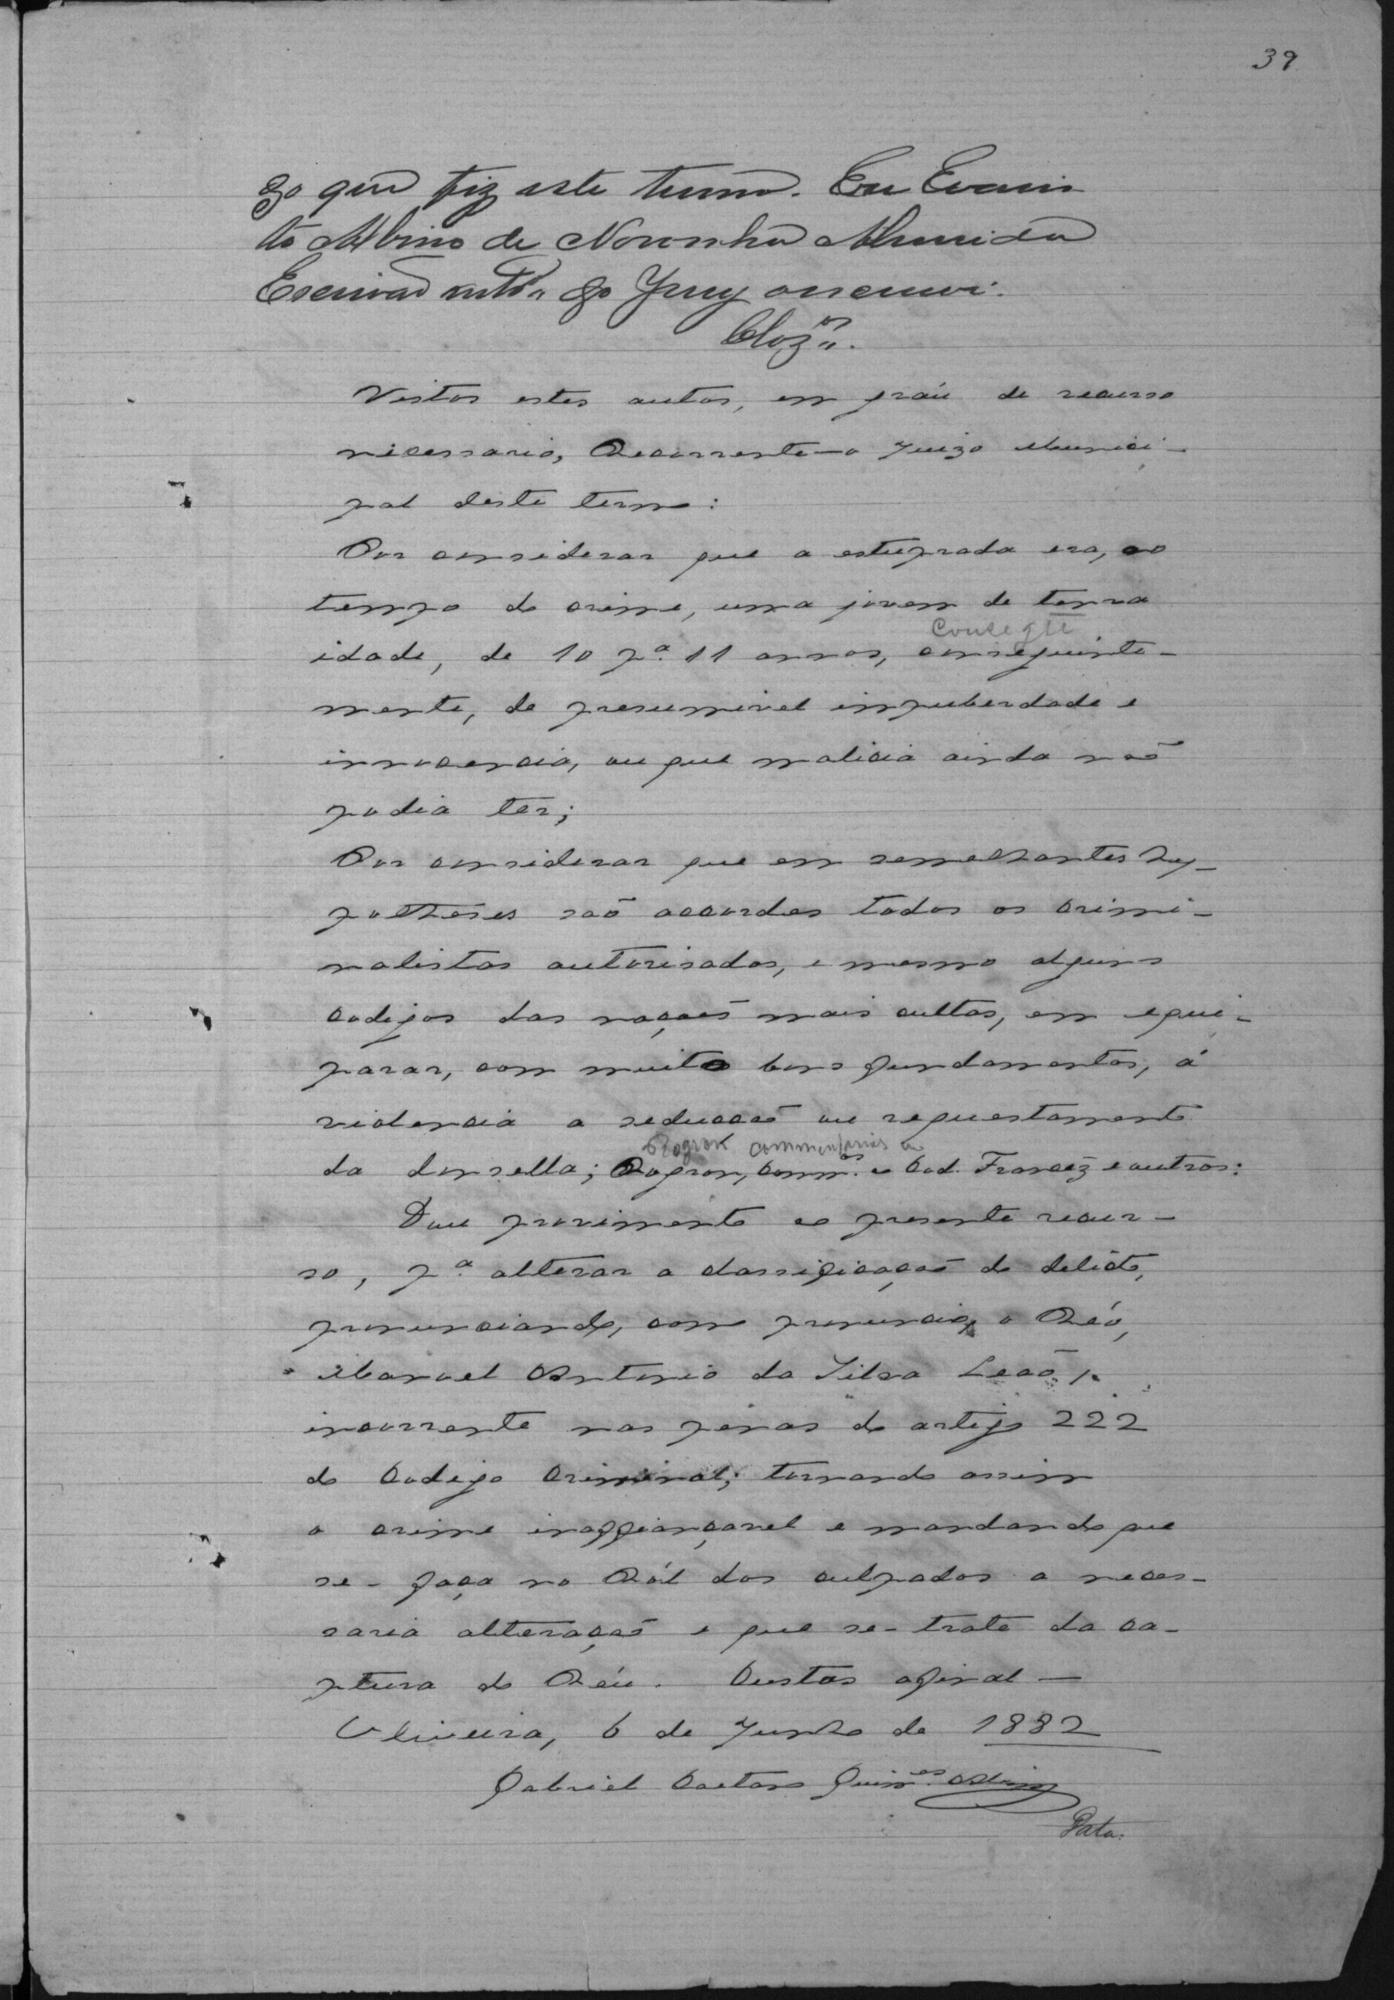 39
go que fiz este termo. Eu Evaris
to Albino de Noronha Almeida
Escrivão do Jury o escrevi.
Cloz.os
Vistos estes autos, em gráu de recurso
necessario, Recorrente - o Juizo Munici-
pal deste termo:
Por considerar que a estuprada era, ao
tempo do crime, uma joven de tenra
Conseqte
idade, de 10 p.a 11 annos, conseguinte-
mente, de presumivel impuberdade e
innocencia, ou que malicia ainda não
podia ter;
Por considerar que em semelhantes hy-
potheses são accordes todos os crimi-
nalistas autorisados, e mesmo alguns
codigos das nações mais cultas, em equi-
parar, com muito bons fundamentos, á
violencia a seducção ou requestamento
Rogron commentarios ao
da donsella; Rogron, Comm.os ao Cod. Francêz e outros:
Dou provimento ao presente recur-
so, p.a alterar a classificação do delicto,
pronunciando, como pronuncio, o Réo,
Manoel Antonio da Silva Leão,
incorrente nas penas do artigo 222
do Codigo Criminal; tornando assim
o crime inaffiançavel e mandando que
se-faça no Ról dos culpados a neces-
saria alteração e que se-trate da ca-
ptura do Réu. Custas afinal -
Oliveira, 6 de Junho de 1882
Gabriel Caetano Guim.es
Data.